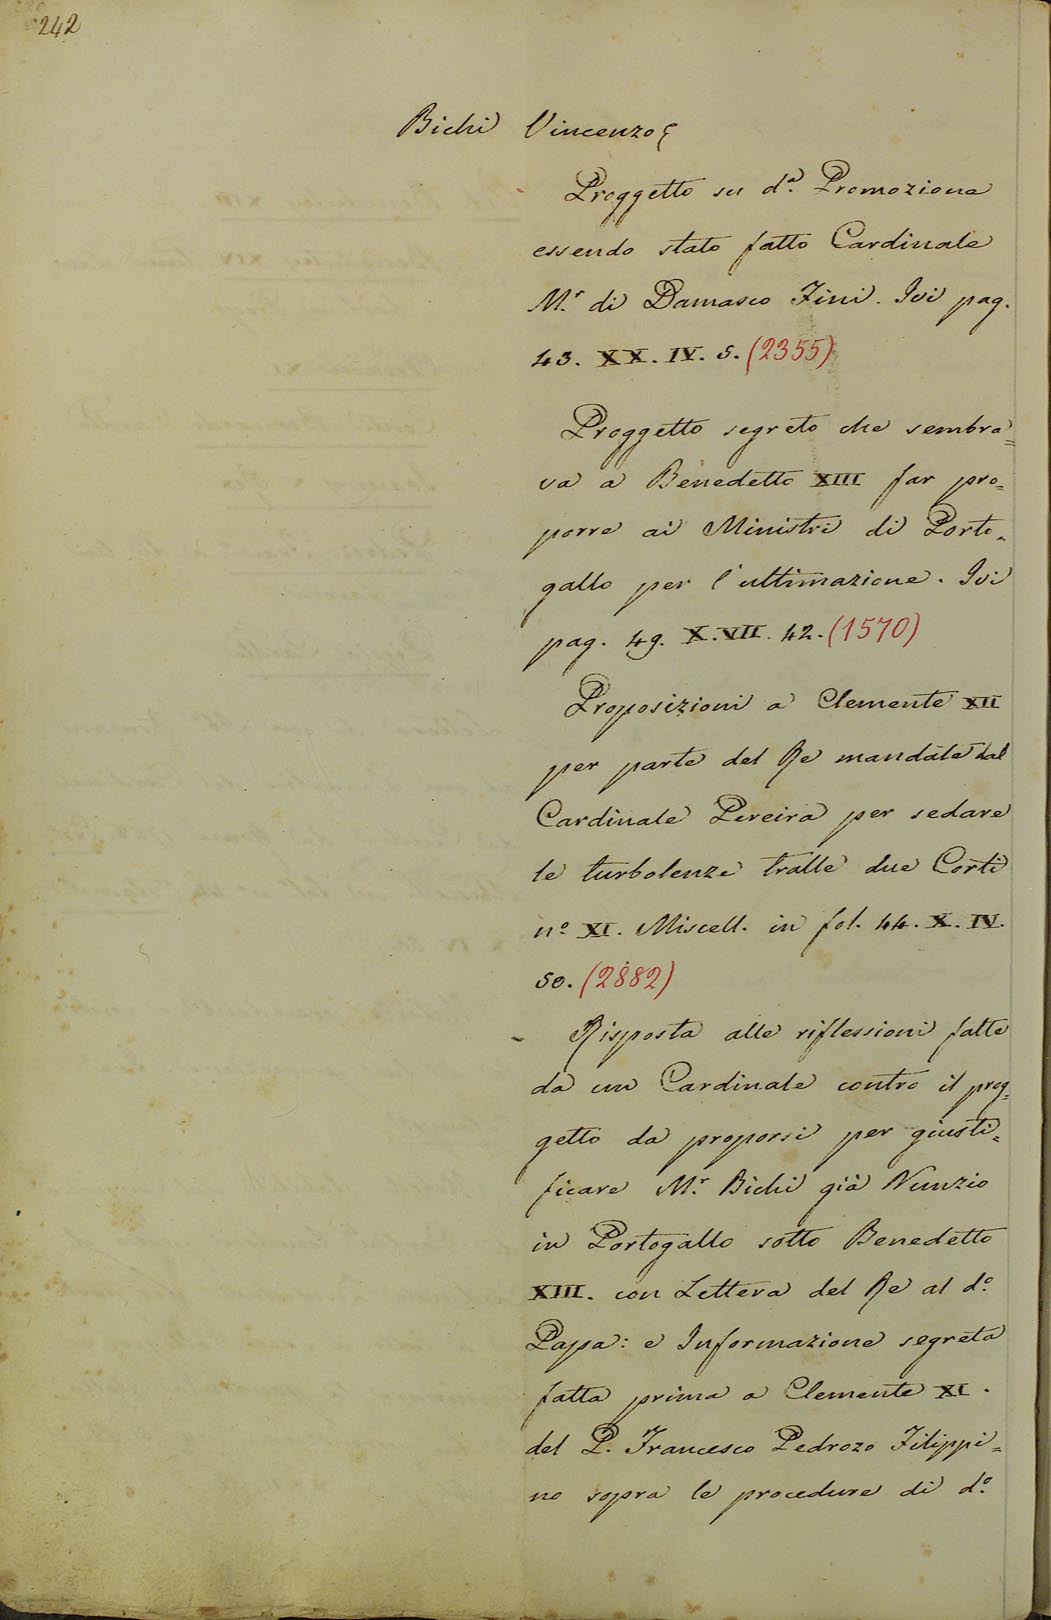 242
Bichi Vincenzo
Proggetto su d.ª Promozione
essendo stato fatto Cardinale
M.r di Damasco Fini. Ivi pag.
43. XX. IV. 5. (2355)
Proggetto segreto che sembra=
va a Benedetto XIII far pro=
porre ai Ministri di Porto=
gallo per l'ultimazione. Ivi
pag. 49. X. VII. 42. (1570)
Proposizioni a Clemente XII
per parte del Re mandate dal
Cardinale Pereira per sedare
le turbolenze tralle due Corti
n.º XI. Miscell. in fol. 44. X. IV.
50. (2882)
Risposta alle riflessioni fatte
da un Cardinale contro il prog=
getto da proporsi per giusti=
ficare M.r Bichi già Nunzio
in Portogallo sotto Benedetto
XIII. con Lettera del Re al d.º
Papa: e Informazione segreta
fatta prima a Clemente XI.
del P. Francesco Pedrozo Filippi=
no sopra le procedure di d.º